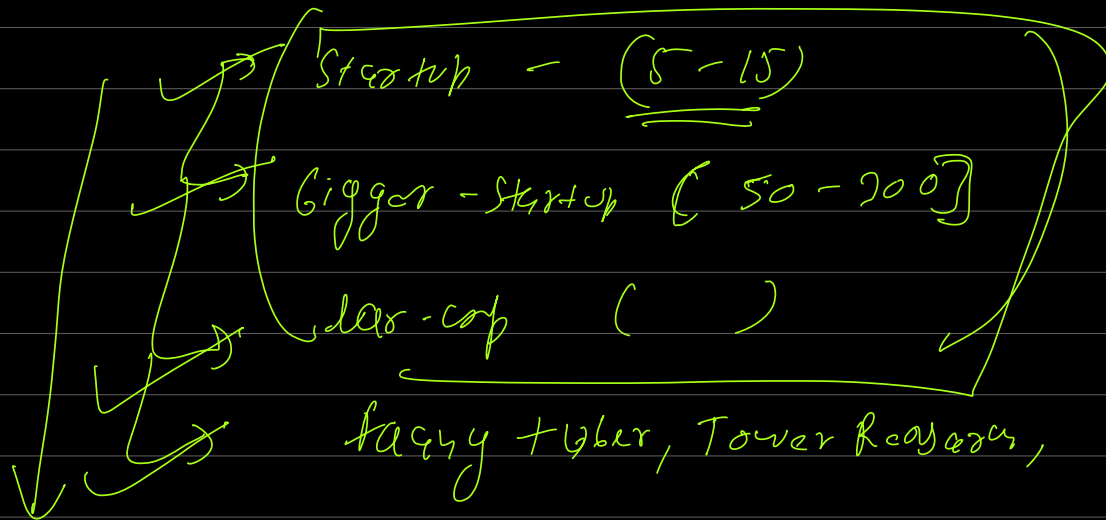 Startup - (5-15)
Bigger-Startup [50-200]
( )
+ Uber, Tower Research,